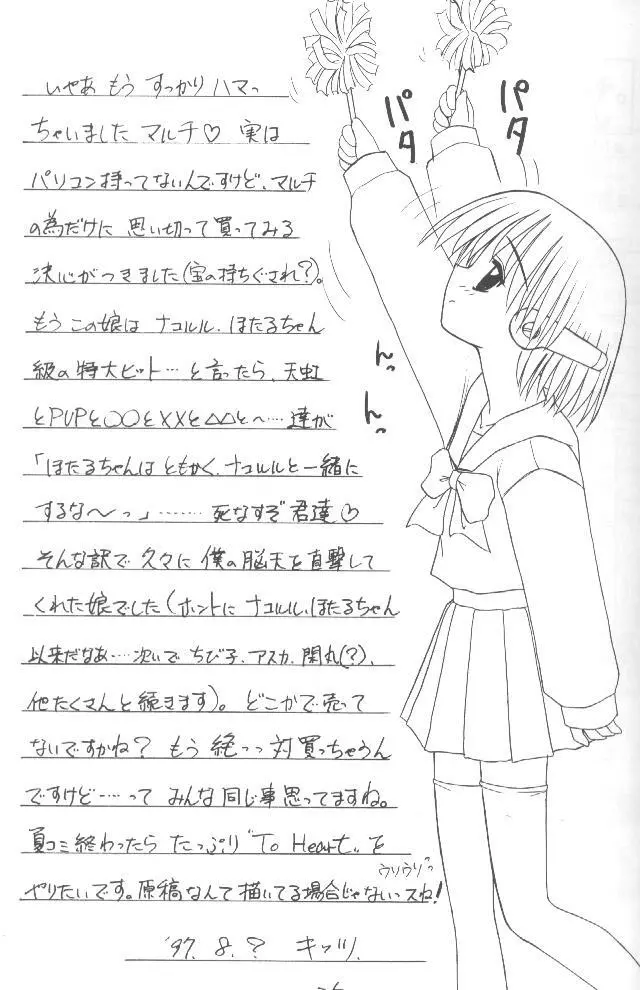 いやあ もう すっかり ハマっ
ちゃいました マルチ♡ 実は
パソコン持ってないんですけど、マルチ
の為だけに 思い切って買ってみる
決心がつきました(宝の持ちぐされ?)。
もう この娘は ナコルル、ほたるちゃん
級の特大ヒット…と言ったら、天虹
とPVPと〇〇と××と△△と〜…達が
「ほたるちゃんは ともかく、ナコルルと一緒に
するな〜っ」……… 死なすぞ 君達♡
そんな訳で 久々に 僕の脳天を直撃して
くれた娘でした(ホントに ナコルル、ほたるちゃん
以来だなあ…次いで ちび子、アスカ、
他たくさんと続きます)。どこかで売って
ないですかね? もう 絶っっ対買っちゃうん
ですけど……って みんな同じ事思ってますね。
夏コミ終わったら たっぷり"To Heart"を
やりたいです。原稿なんて描いてる場合じゃないっスね!
ウリウリっ
'97. 8. ?
パタ
パタ
んっ
んっ